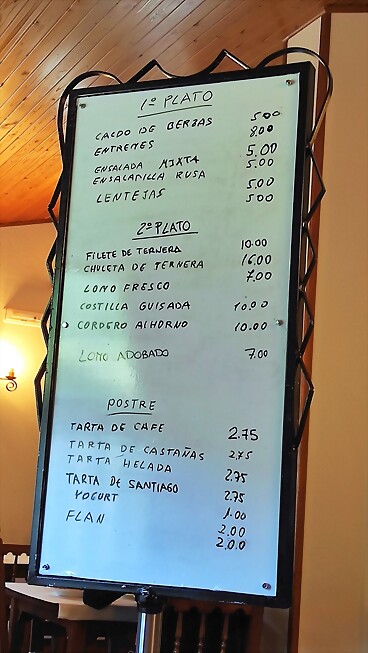 1º PLATO
CALDO DE BERZAS 5,00
ENTREMES 8.00
ENSALADA MIXTA 5.00
ENSALADILLA RUSA 5.00
LENTEJAS 5.00
500
2º PLATO
FILETE DE TERNERA 10.00
CHULETA DE TERNERA 16.00
LOMO FRESCO 7.00
COSTILLA GUISADA 10.00
CORDERO Al HORNO 10.00
LOMO ADOBADO 7.00
POSTRE
TARTA DE CAFE 2.75
TARTA DE CASTAÑAS 2.75
TARTA HELADA 2.75
TARTA DE SANTIAGO 2.75
YOGURT 1.00
FLAN 2.00
2.00